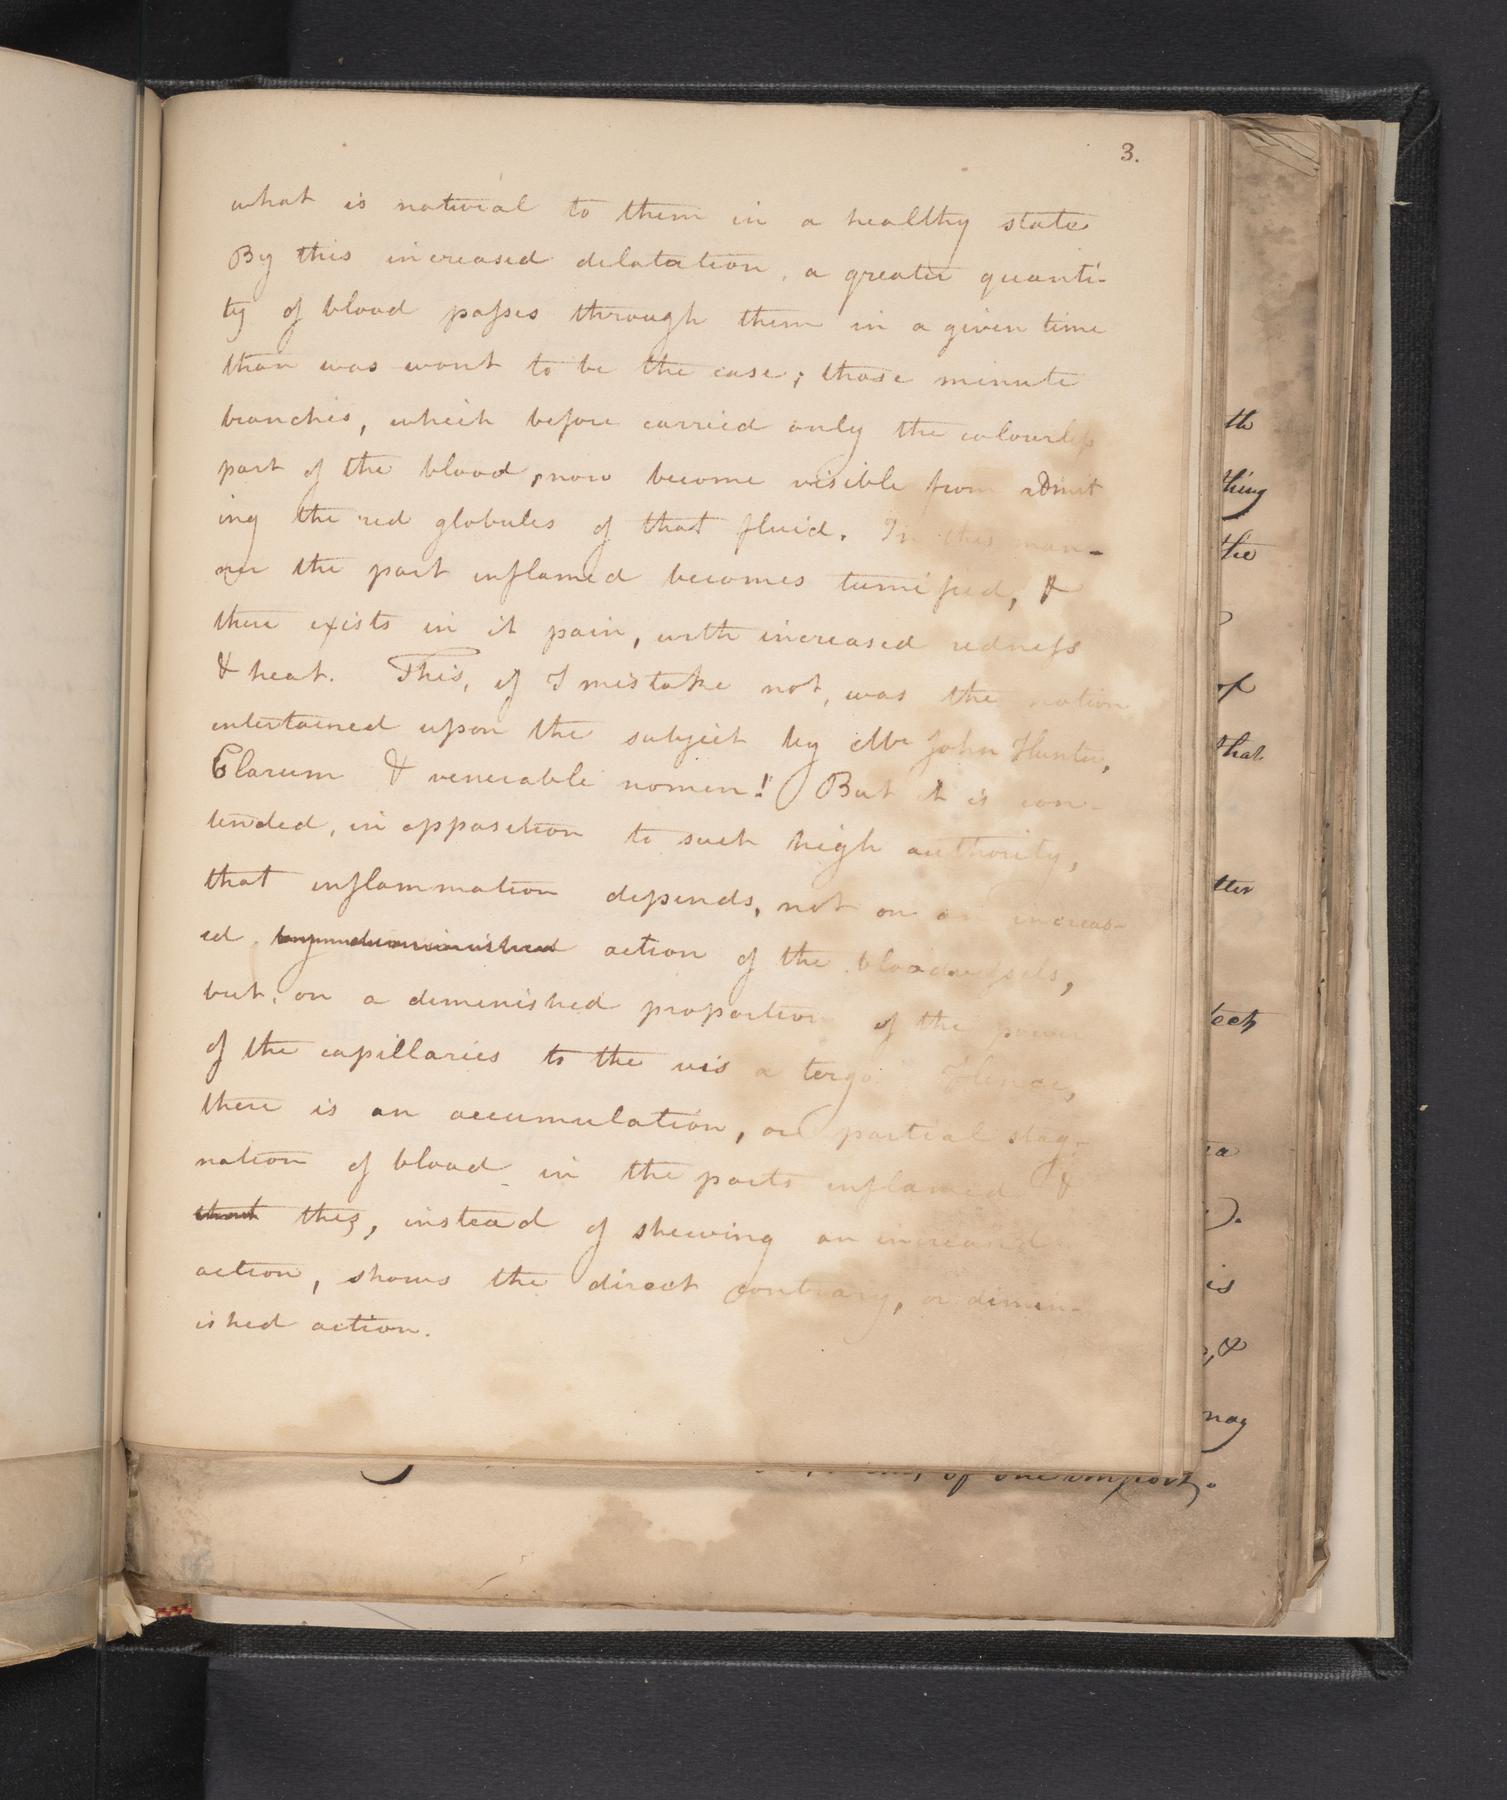 3.
what is natural to them in a healthy state
By this increased dilatation, a greater quanti-
ty of blood passes through them in a given time
than was wont to be the case; those minute
branches, which before carried only the colourless
part of the blood, now become visible from admit
ing the red globules of that fluid. In this man-
ner the part inflamed becomes tumified, &
there exists in it pain, with increased redness
& heat. This, if I mistake not, was the notion
entertained upon the subject by Mr John Hunter,
Clarum & venerabile nomen! But it is con-
tended, in opposition to such high authority,
that inflammation depends, not on an increas-
ed action of the bloodvessels,
but, on a diminished proportion of the power
of the capillaries to the vis a tergo. Hence,
there is an accumulation, or partial stag-
nation of blood in the parts inflamed &
this, instead of shewing an increased
action, shows the direct contrary, or dimin-
ished action.
th
thing
the
of
that
tter
is
&
may
of